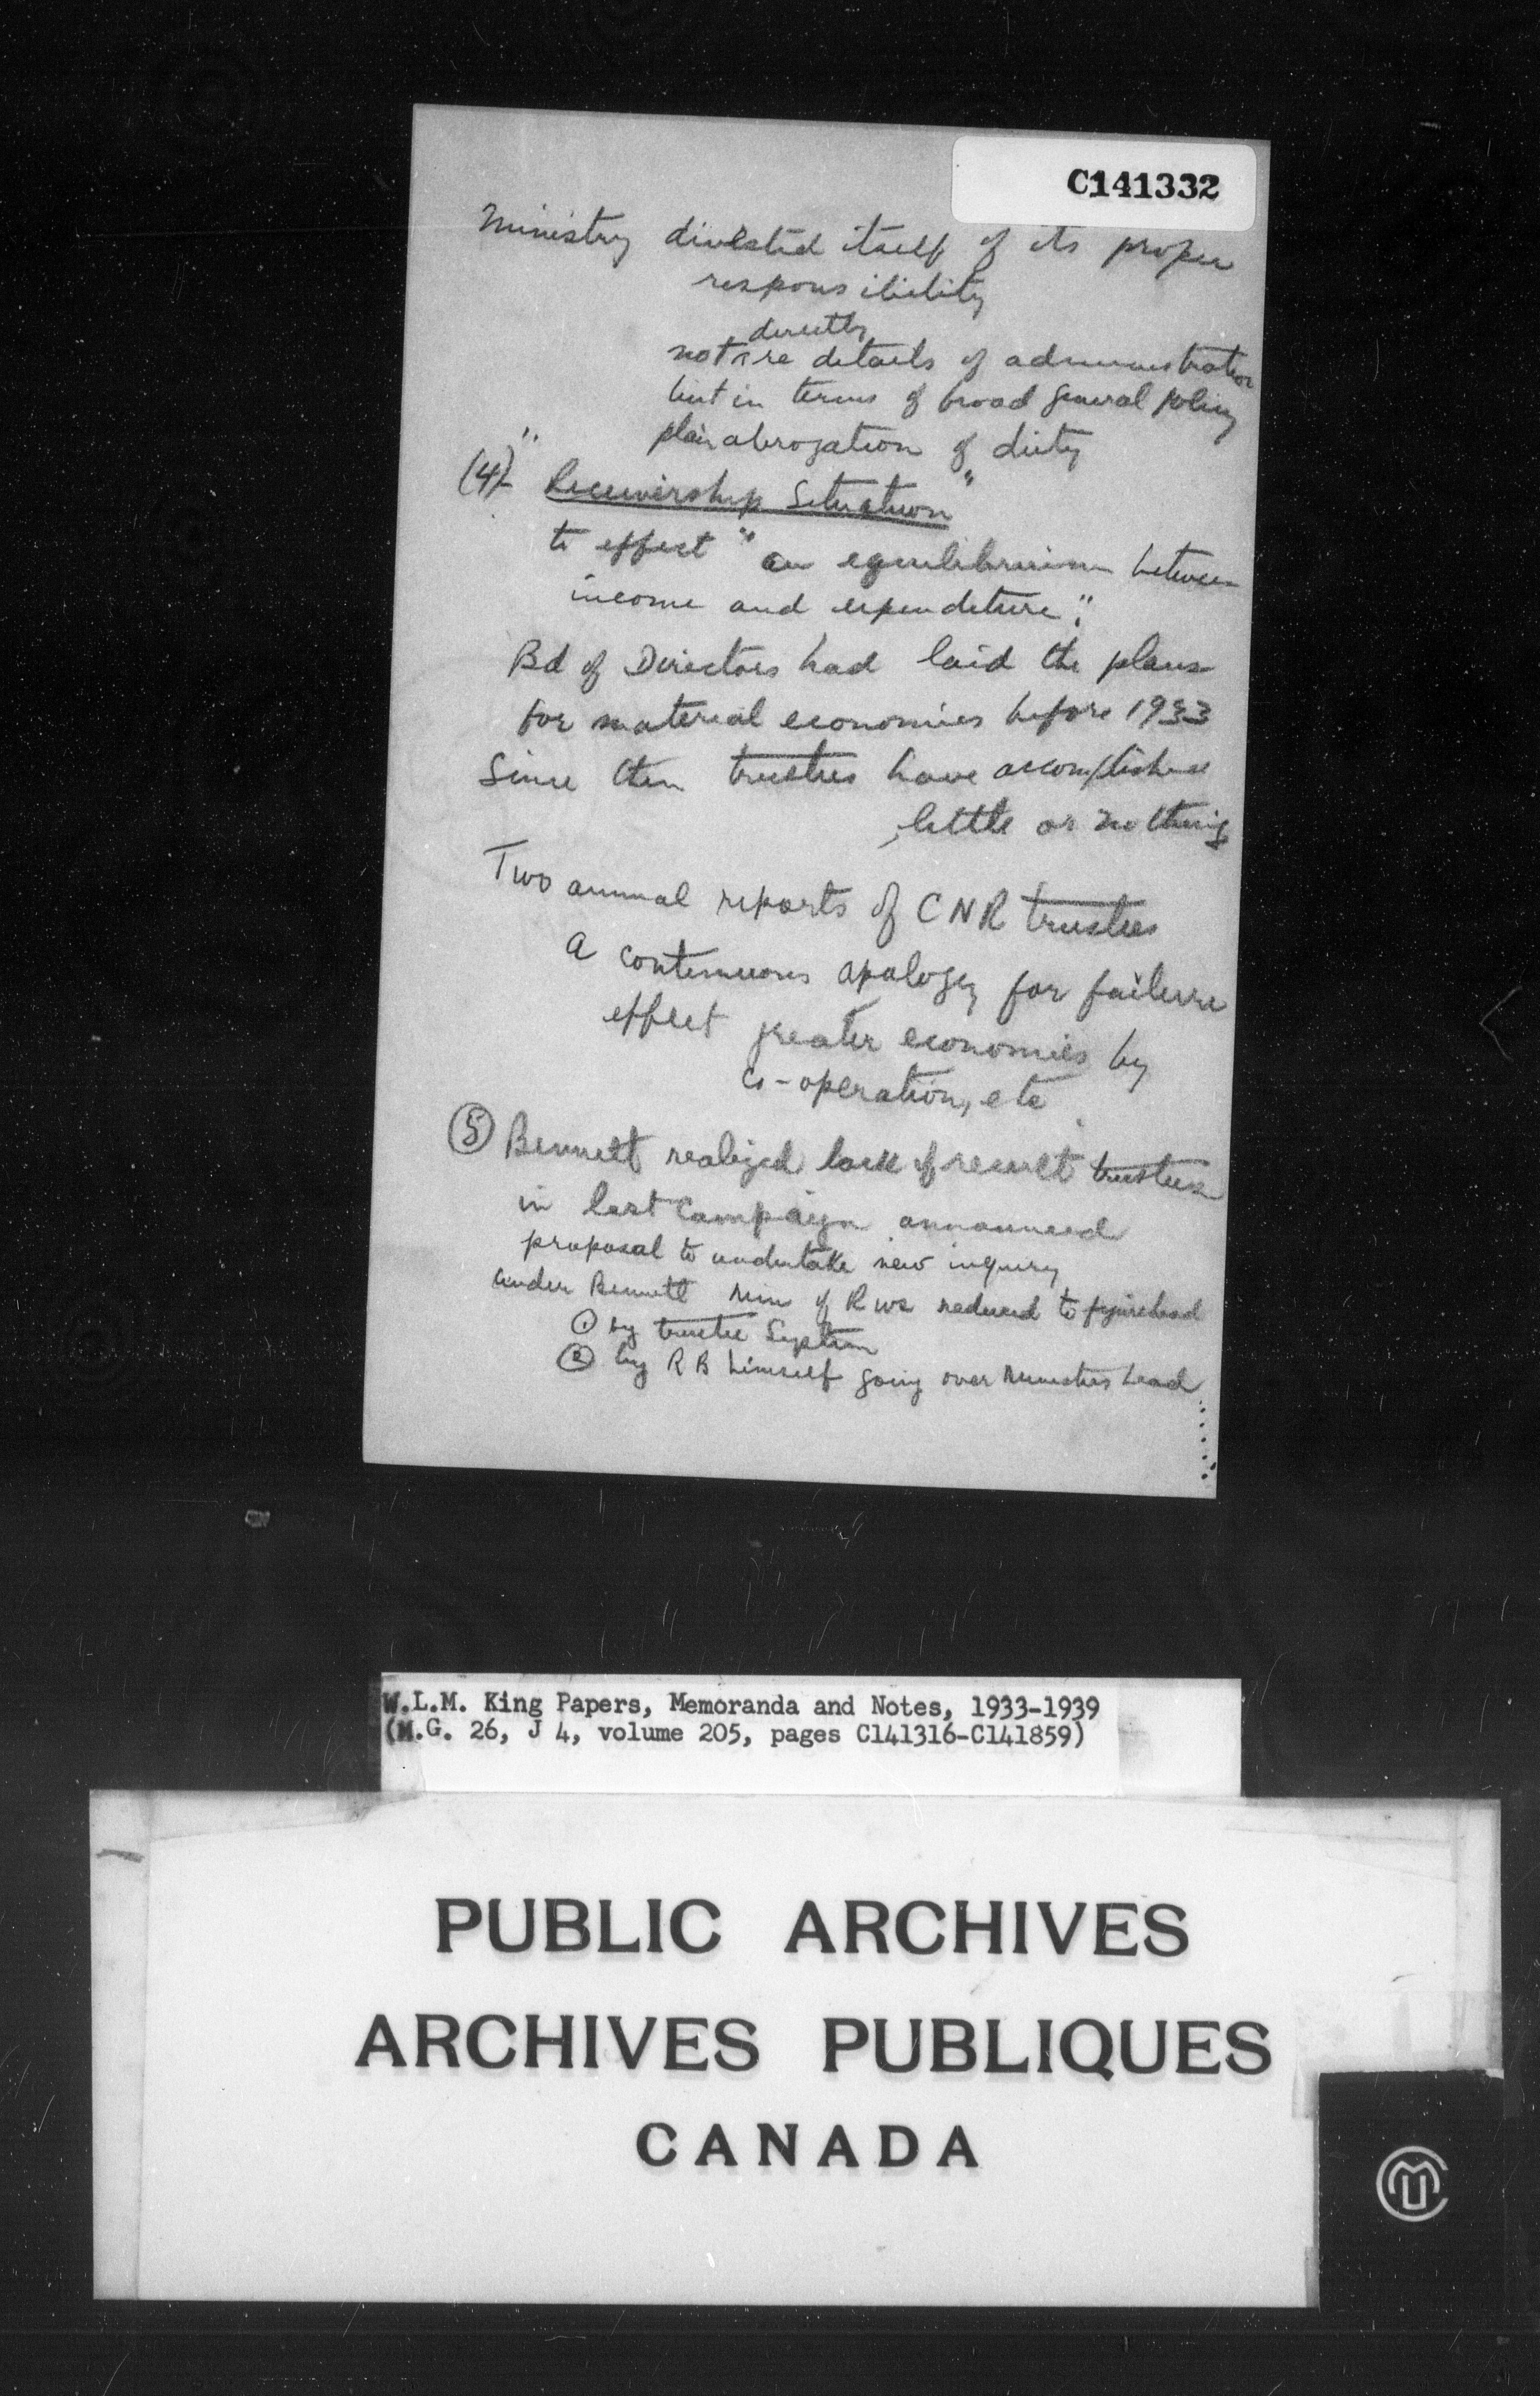 C141332
Ministry divested itself of its proper
responsibility
directly
not re details of administration
but in terms of broad general policy
plain abrogation of duty
(4) "Receivership Situation"
to effect "an equilibrium between
income and expenditure".
Bd of Directors had laid the plans
for material economies before 1933
Since then trustees have accomplished
little or nothing
Two annual reports of CNR trustees
a continuous apology for failure
effect greater economies by
co-operation, etc
(5) Bennett realized lack of result trustees
in last campaign announced
proposal to undertake new inquiry
under Bennett Min of Rws reduced to figurehead
(1) by trustee System
(2) by R B himself going over Ministers head
W.L.M. King Papers, Memoranda and Notes, 1933-1939
(M.G. 26, J 4, volume 205, pages C141316-C141859)
PUBLIC ARCHIVES
ARCHIVES PUBLIQUES
CANADA